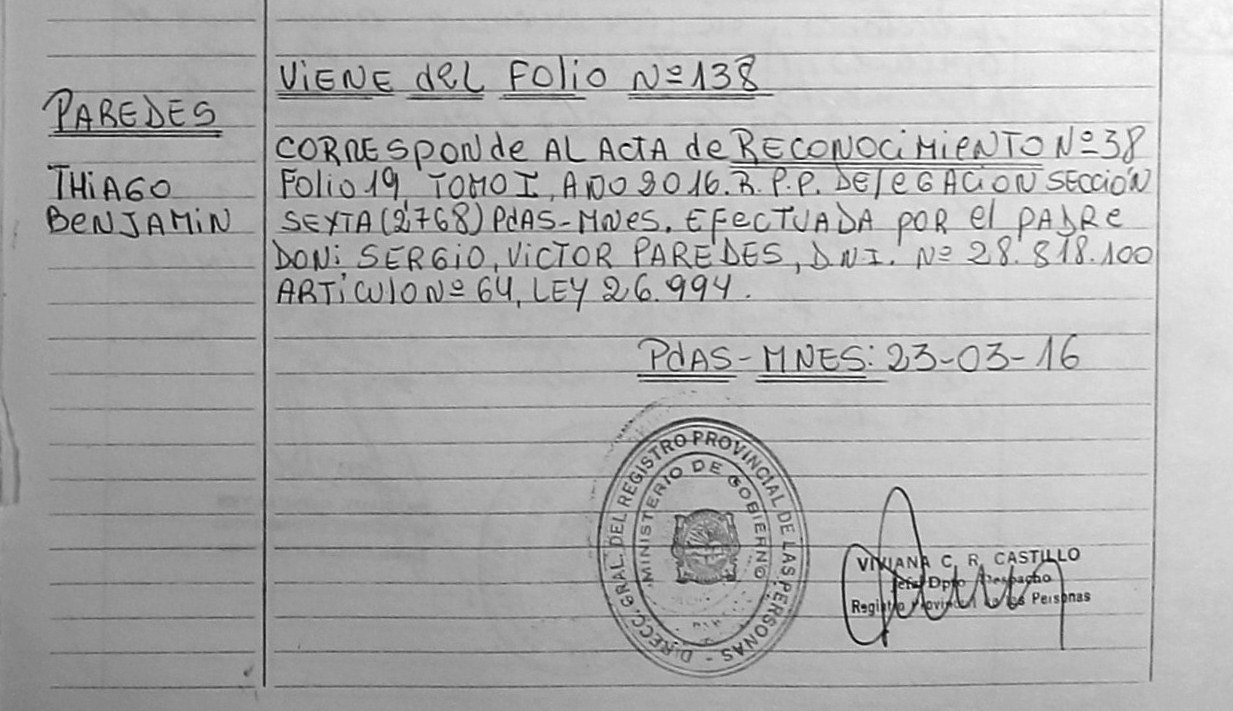 PAREDES
THIAGO
BENJAMIN
VIENE del Folio Nº 138
CORRESponde AL ActA de RECONOCIMIENTO Nº 38
Folio 19, TOMO I, AÑO 2016. R.P.P. DELEGACION SECCIÓN
SEXTA (2768) PdAS-MNes. EFECTUADA POR el PADRe
DON: SERGIO, VICTOR PAREDES, D.N.I. Nº 28.818.100
ARTÍCULO Nº 64, LEY 26.994.
PdAS-MNES: 23-03-16
DIRECC. GRAL. DEL REGISTRO PROVINCIAL DE LAS PERSONAS -
MINISTERIO DE GOBIERNO
VIVIANA C. R. CASTILLO
Jefa Dpto Despacho
Registro Provincial de las Personas